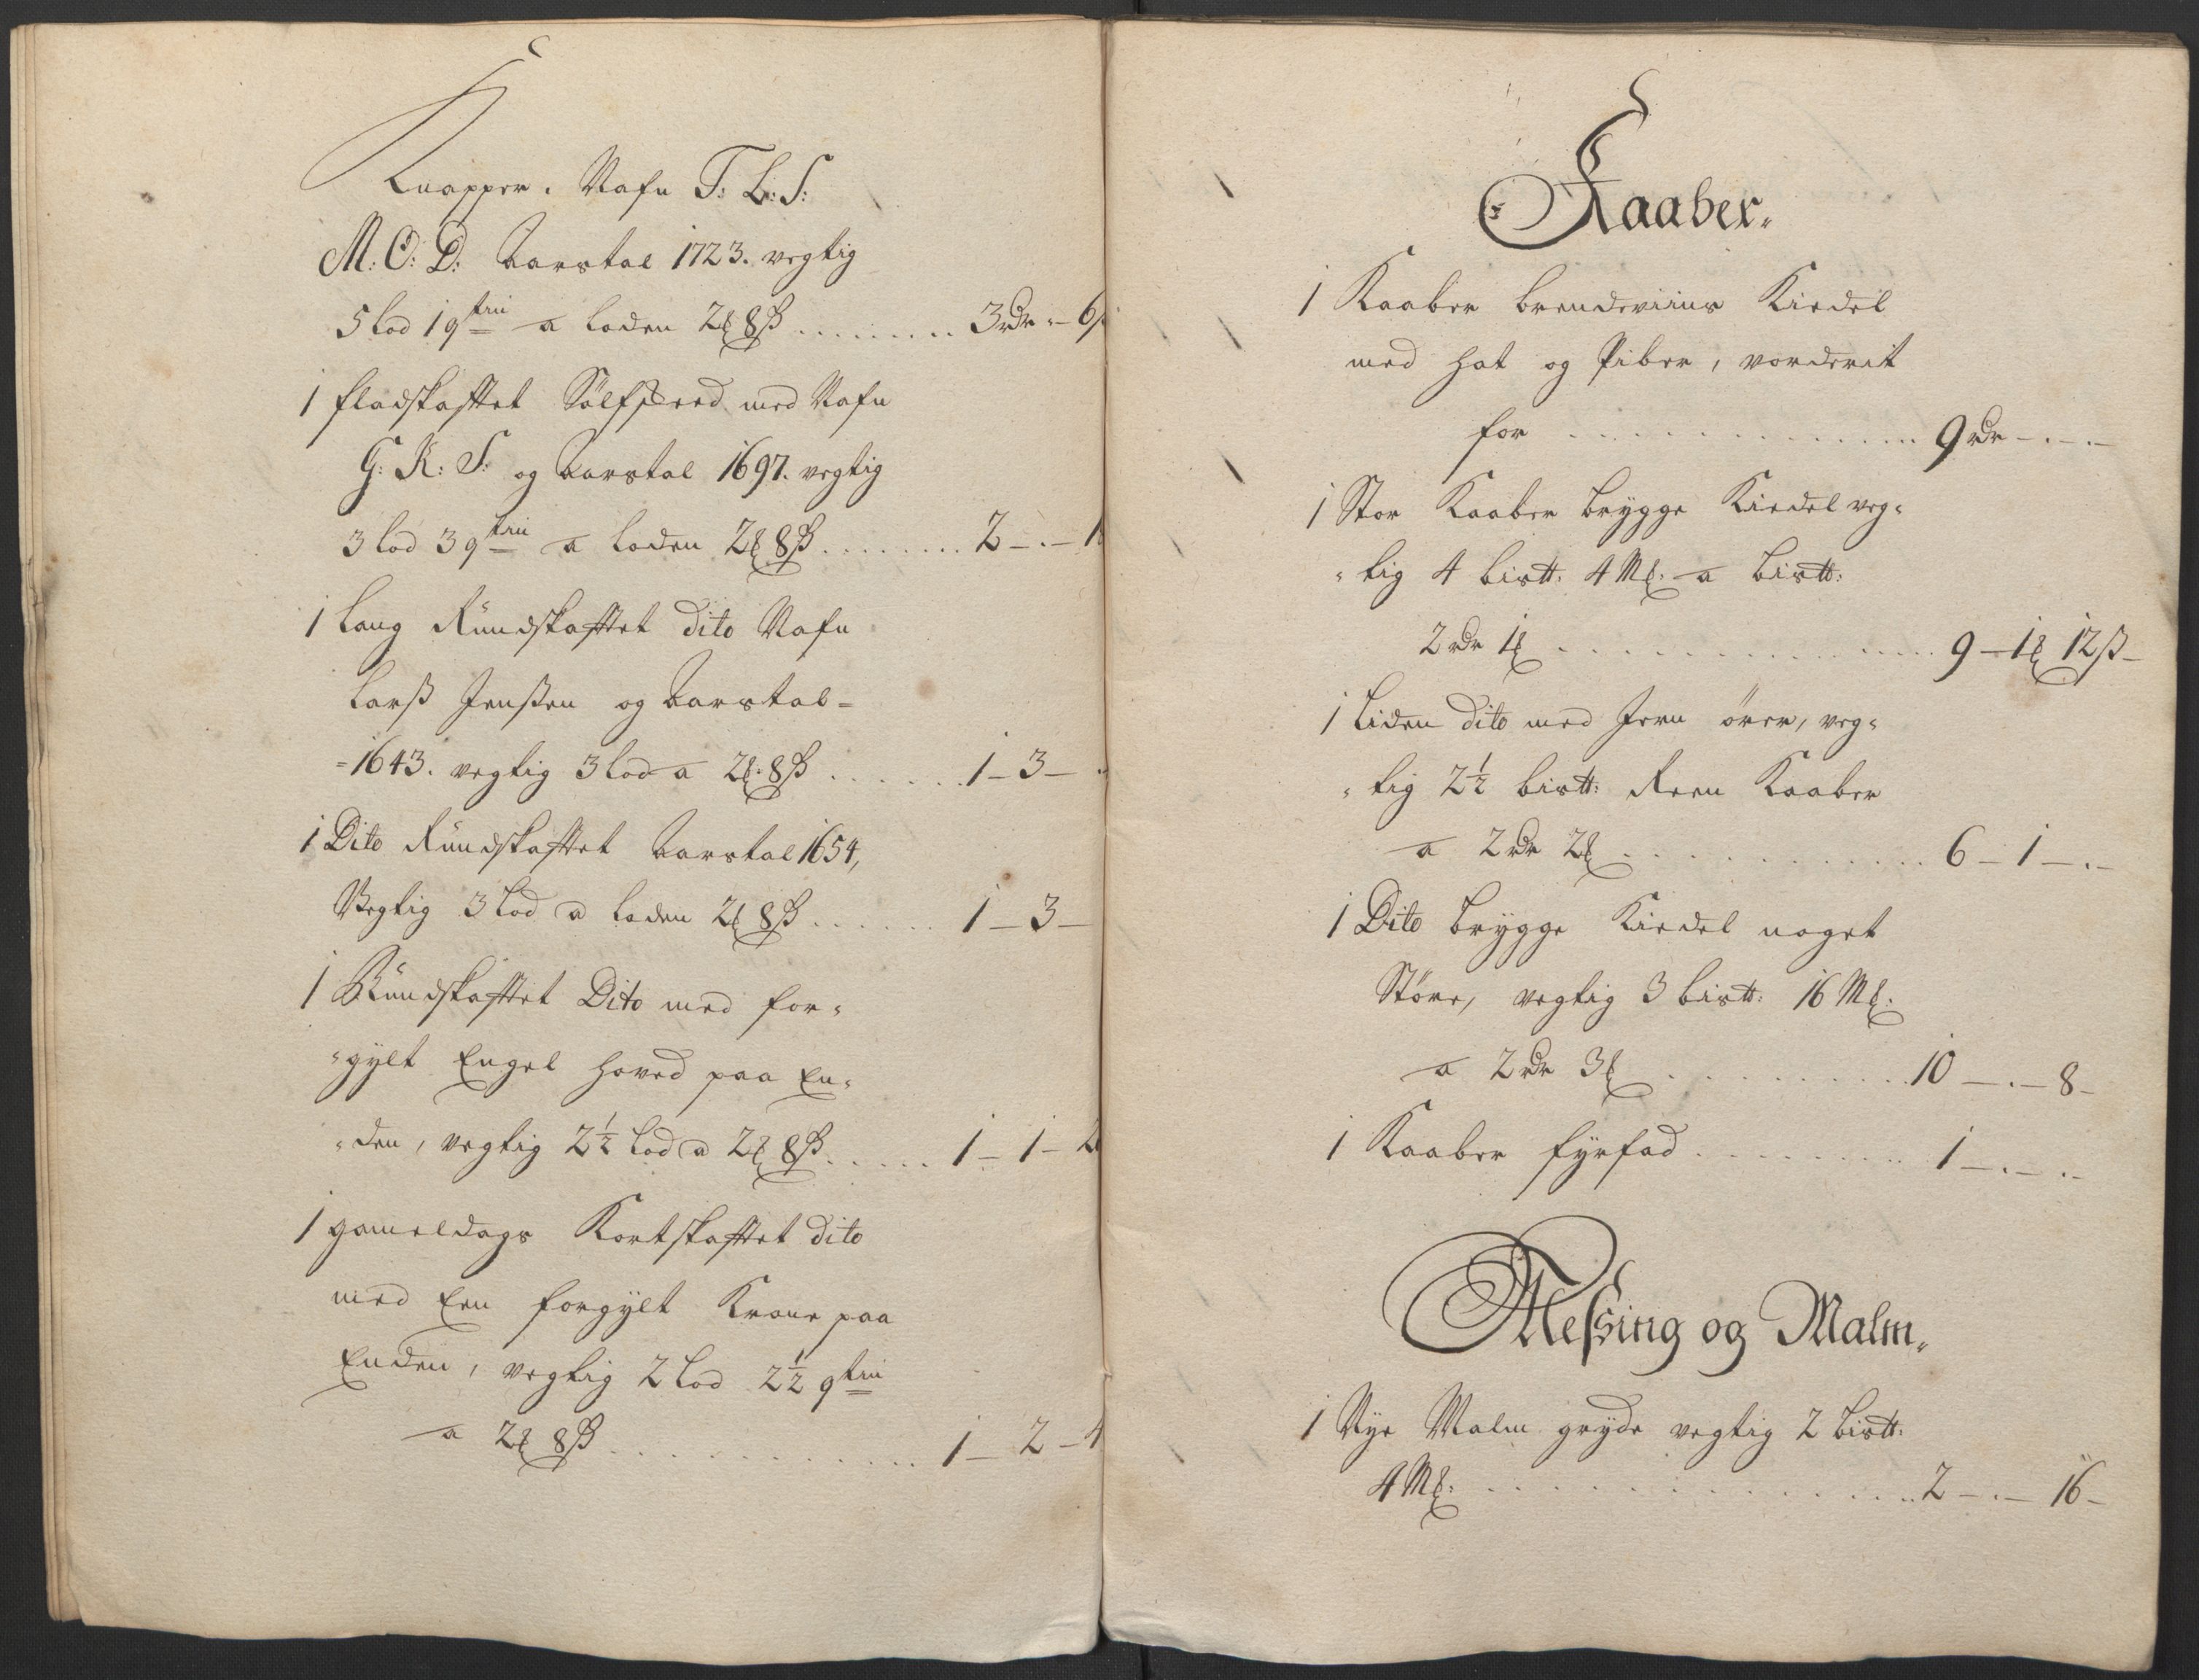 Knapper. Nafn T: L: S:
M: O: D: Aarstal 1723. vegtig
5 lod 1 qtin a loden 2ℳ 8ß ......... 3rdr - 6ß
1 fladskafftet Sølfskeed med Nafn
G: K: S: og Aarstal 1697. vegtig
3 lod 3 qtin a loden 2ℳ 8ß ........ 2 - . - 1
1 Lang Rundskafftet dito Nafn
Larß Jenßen og Aarstal =
= 1643. vegtig 3 lod a 2ℳ: 8ß ....... 1 - 3 -
1 Dito Rundskafftet Aarstal 1654,
Vegtig 3 Lod a loden 2ℳ 8ß ...... 1 - 3 -
1 Rundskafftet Dito med for=
=gylt Engel hoved paa En=
=den, vegtig 2½ Lod a 2ℳ 8ß ..... 1 - 1 -
1 gameldags Kortskafftet dito
med Een forgylt Krone paa
Enden, vegtig 2 Lod 2½ qtin
a 2ℳ 8ß ............ 1 - 2 - 4
Kaaber.
1 Kaaber brendeviins Kiedel
med Hat og Piber, vorderit
for ............ 9 rdr - . - . -
1 Stor Kaaber brygge Kiedel veg=
=tig 4 bis℔: 4 Mℳ: a bis℔:
2 rdr 1ℳ ............ 9 - 1ℳ 12ß -
1 Liden dito med Jern ører, veg=
=tig 2½ bis℔: Reen Kaaber
a 2 rdr 2ℳ ............ 6 - 1 - . -
1 Dito brygge Kiedel noget
Større, vegtig 3 bis℔: 16 Mℳ:
a 2 rdr 3ℳ ......... 10 - . - 8 -
1 Kaaber fyrfad ........ 1 - . - . -
Meßing og Malm.
1 Nye Malm gryde vegtig 2 bis℔:
4 Mℳ: ............ 2 - . - 16 -